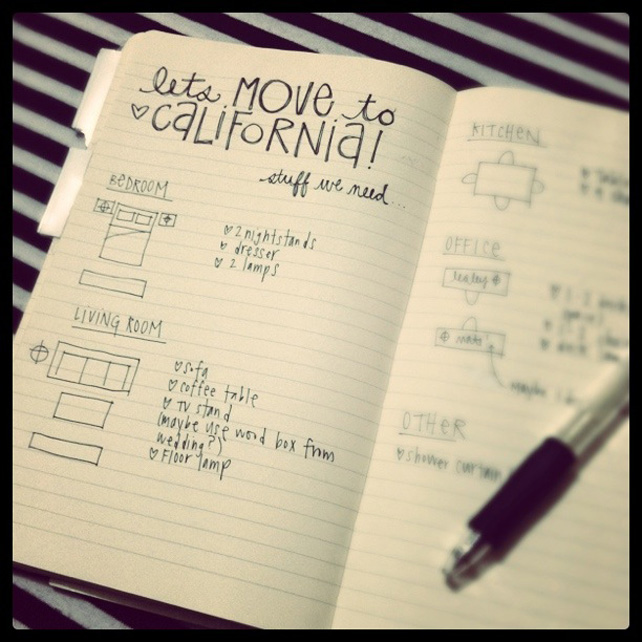 lets MOVE to
CALIFORNIA!
stuff we need...
BEDROOM
2 nightstands
dresser
2 lamps
LIVING ROOM
sofa
coffee table
TV stand
(maybe use word box from
wedding?)
Floor lamp
KITCHEN
OFFICE
OTHER
shower curtain